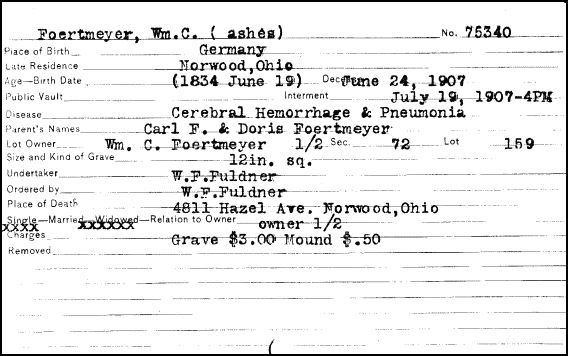 Foertmeyer, Wm.C. ( ashes) No. 75340
Place of Birth Germany
Late Residence Norwood,Ohio
Age—Birth Date (1834 June 19) Deceased June 24, 1907
Public Vault Interment July 19, 1907-4PM
Disease Cerebral Hemorrhage & Pneumonia
Parent's Names Carl F. & Doris Foertmeyer
Lot Owner Wm. C. Foertmeyer 1/2 Sec. 72 Lot 159
Size and Kind of Grave 12in. sq.
Undertaker W.F.Fuldner
Ordered by W.F.Fuldner
Place of Death 4811 Hazel Ave. Norwood,Ohio
Single—Married—Widowed—Relation to Owner owner 1/2
xxxx xxxxxx
Charges Grave $3.00 Mound $.50
Removed